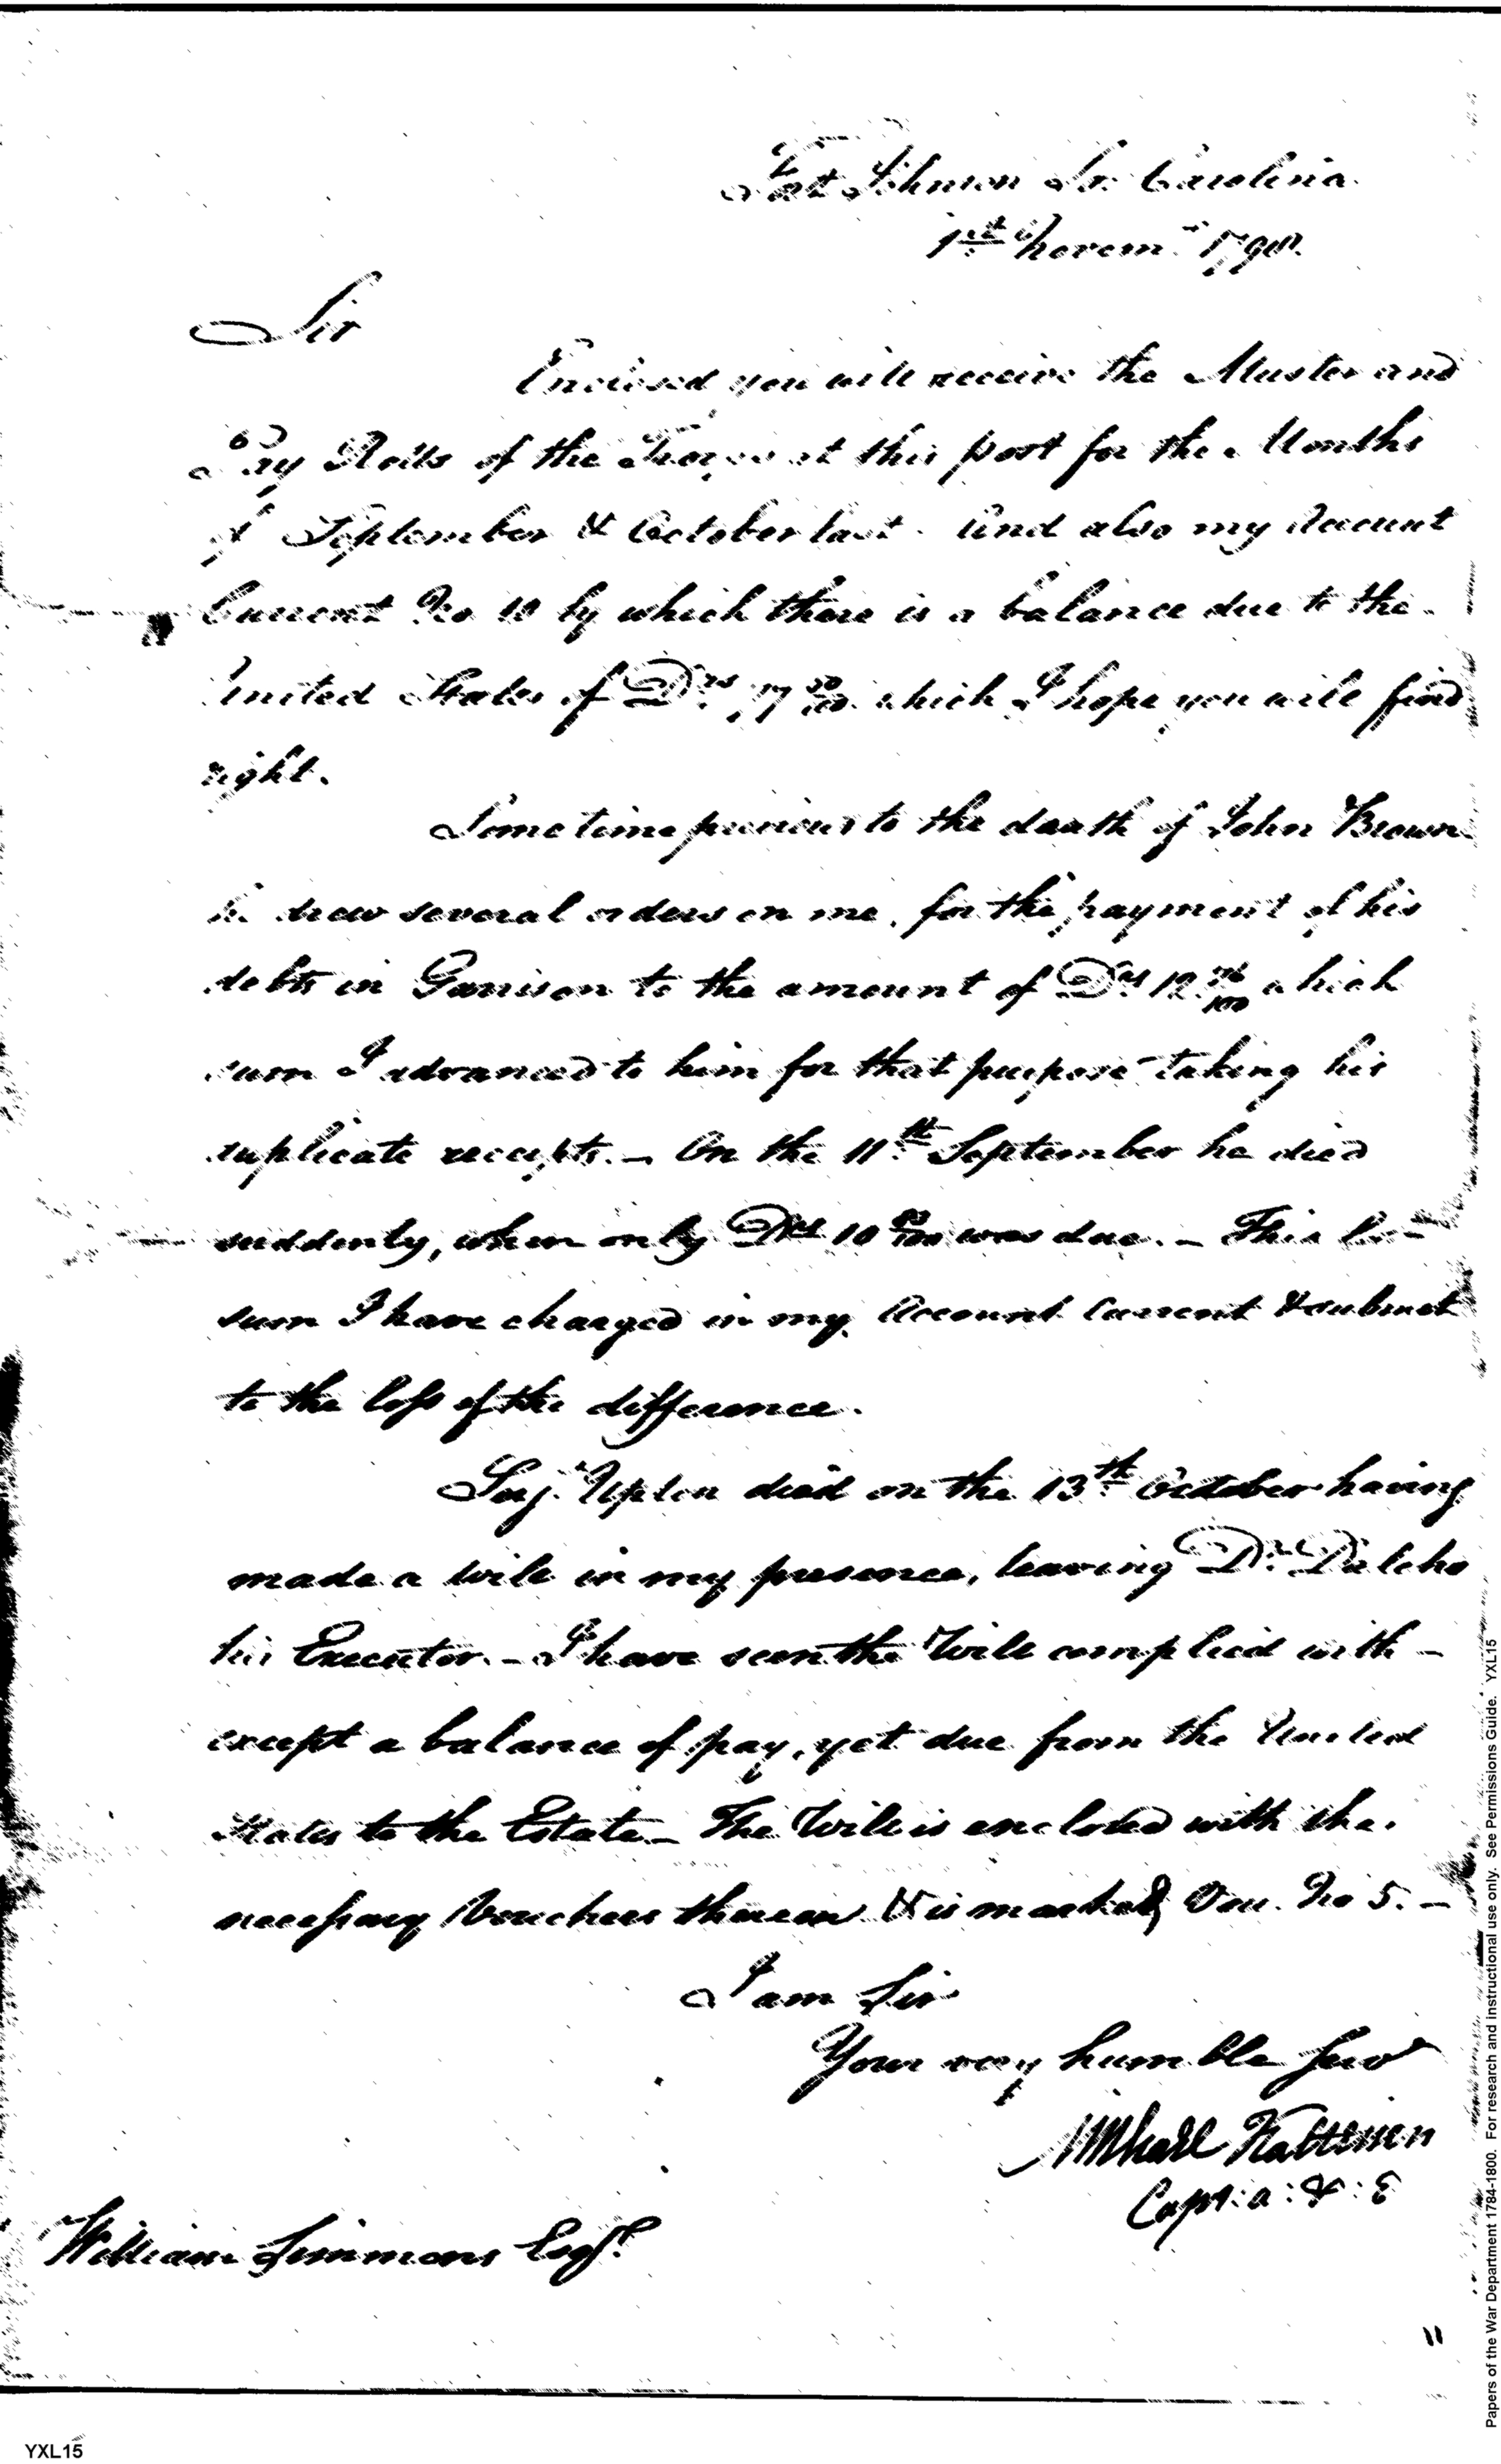 Fort Johnson So. Carolina
1st Novemr 179
Sir
Enclosed you will receive the Muster and
Pay Rolls of the Troops at this post for the Months
of September & October last. And also my Account
Current No 10 by which there is a balance due to the
United States of Drs which I hope you will find
right.
Some time previous to the death of John Brown
he drew several orders on me, for the payment of his
debts in Garrison to the amount of Drs 12 /100 which
sum I advanced to him for that purpose taking his
duplicate receipts. _ On the 11th September he died
suddenly, when only Drs 10 /100 was due. _ This
sum I have charged in my Account Current & submit
to the loss of the difference.
Serjt Upton died on the 13th October having
made a will in my presence, leaving Dr. Dalcho
his Executor. _ I have seen the Will complied with _
except a balance of pay, yet due from the United
States to the Estate _ The Will is enclosed with the
necessary Vouchers thereon & is marked Vou. No 5. _
I am Sir
Your very humble Servt
Michael Kalteisen
Capt: a: & : E
William Simmons Esqr.
11
Papers of the War Department 1784-1800. For research and instructional use only. See Permissions Guide. YXL15
YXL15